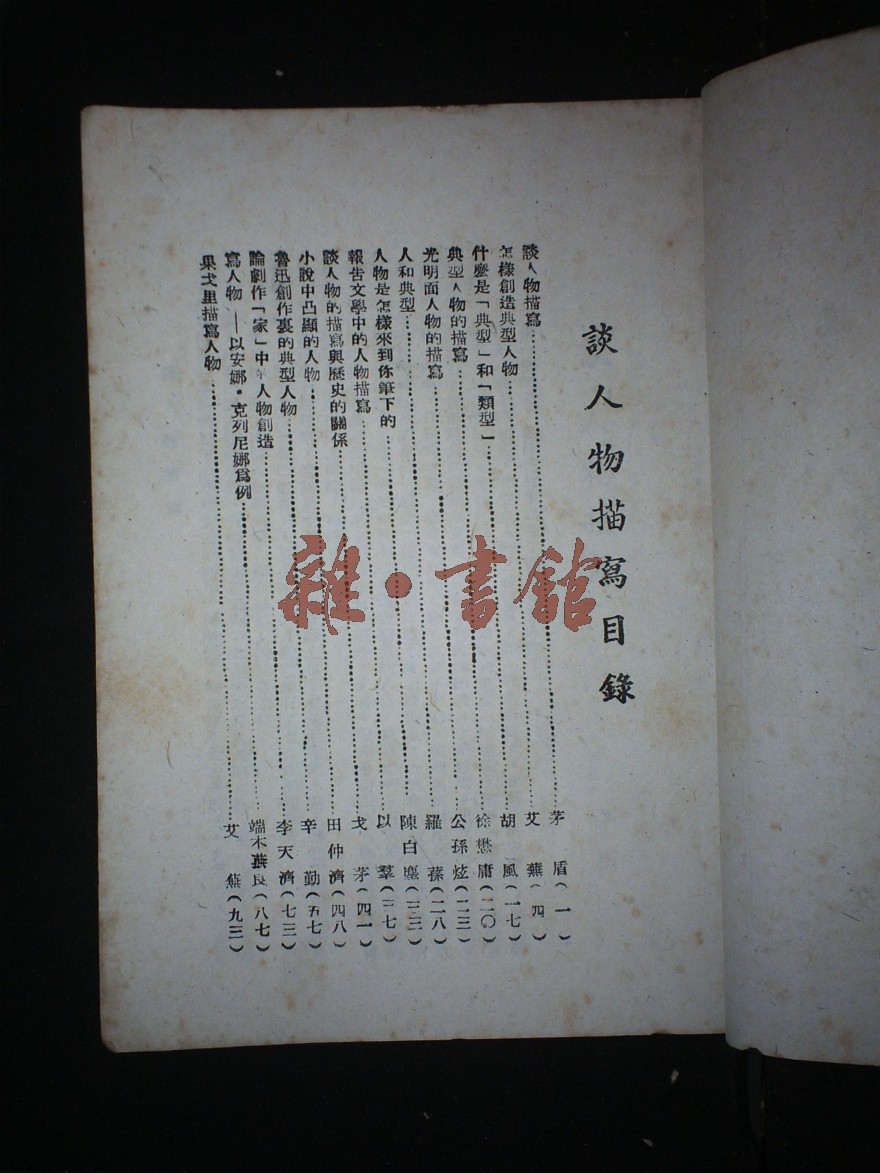 談人物描寫目錄
談人物描寫……茅盾(一)
怎樣創造典型人物……艾蕪(四)
什麼是「典型」和「類型」……胡風(一七)
典型人物的描寫……徐懋庸(二〇)
光明面人物的描寫……公孫炫(二三)
人和典型……羅蓀(二八)
人物是怎樣來到你筆下的……陳白塵(三三)
報告文學中的人物描寫……以羣(三七)
談人物的描寫與歷史的關係……戈茅(四一)
小說中凸顯的人物……田仲濟(四八)
魯迅創作裏的典型人物……辛勤(五七)
論劇作「家」中人物創造……李天濟(七三)
寫人物——以安娜·克列尼娜為例……端木蕻良(八七)
果戈里描寫人物……艾蕪(九三)
雜·書館